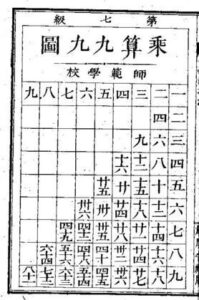 第七級
乘算九九圖
師範學校
一 二 三 四 五 六 七 八 九
二 四
三 六 九
四 八 十二 十六
五 十 十五 廿 廿五
六 十二 十八 廿四 卅 卅六
七 十四 廿一 廿八 卅五 四二 四九
八 十六 廿四 卅二 四十 四八 五六 六四
九 十八 廿七 卅六 四五 五四 六三 七二 八一